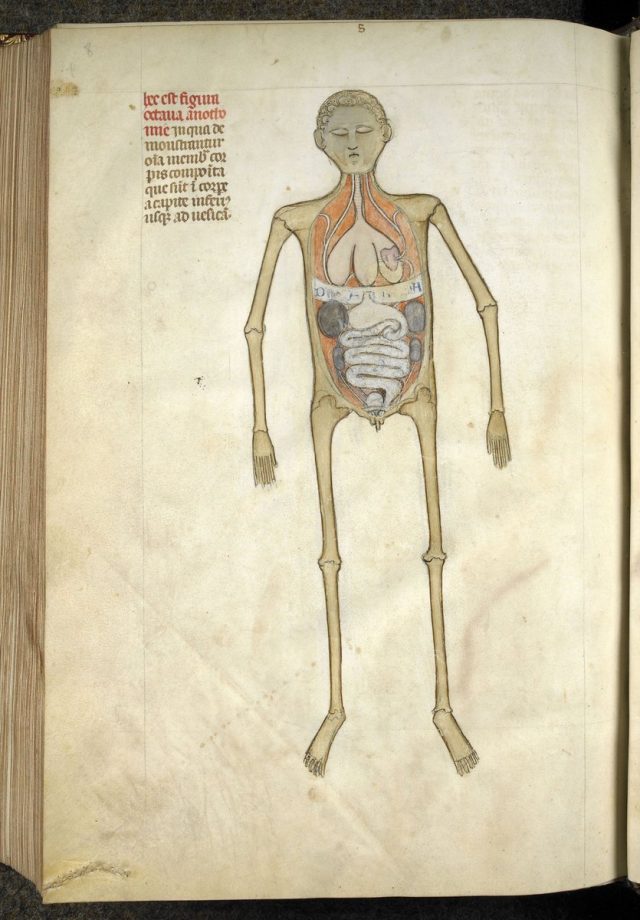 8
S
hec est figura
octaua anotho
mie in qua de
monstrantur
oīa membra cor
poris composita
que sūt ī corpe
a capite inferiꝰ
usqꝫ ad uesicā